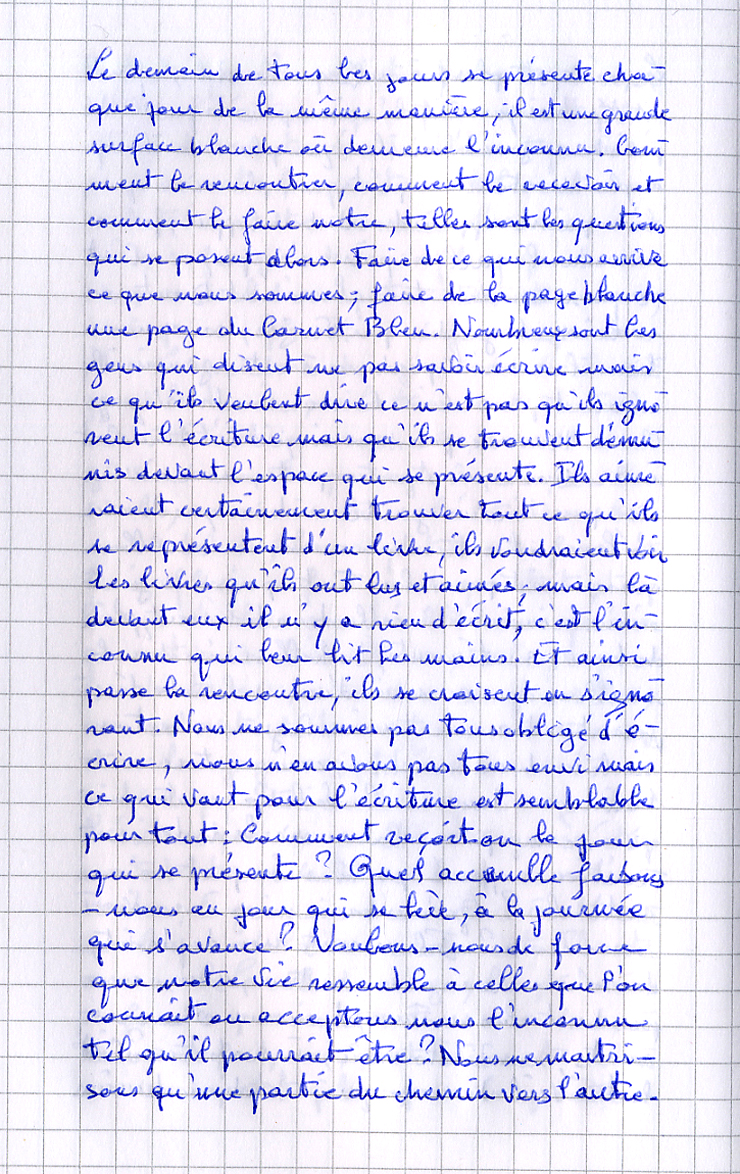 Le demain de tous les jours se présente cha-
que jour de la même manière, il est une grande
surface blanche où demeure l'inconnu. Com-
ment le rencontrer, comment le recevoir et
comment le faire notre, telles sont les questions
qui se posent alors. Faire de ce qui nous arrive
ce que nous sommes; faire de la page blanche
une page du Carnet Bleu. Nombreux sont les
gens qui disent ne pas savoir écrire mais
ce qu'ils veulent dire ce n'est pas qu'ils igno-
rent l'écriture mais qu'ils se trouvent dému-
nis devant l'espace qui se présente. Ils aime-
raient certainement trouver tout ce qu'ils
se représentent d'un livre, ils voudraient voir
les livres qu'ils ont lus et aimés, mais là
devant eux il n'y a rien d'écrit, c'est l'in-
connu qui leur lit les mains. Et ainsi
passe la rencontre, ils se croisent en s'igno-
rant. Nous ne sommes pas tous obligé d'é-
crire, nous n'en avons pas tous envi mais
ce qui vaut pour l'écriture est semblable
pour tout: Comment reçoit on le jour
qui se présente? Quel accueille faisons
-nous au jour qui se lève, à la journée
qui s'avance? Voulons-nous de force
que notre vie ressemble à celles que l'on
connait ou acceptons nous l'inconnu
tel qu'il pourrait être? Nous ne maitri-
sons qu'une partie du chemin vers l'autre.